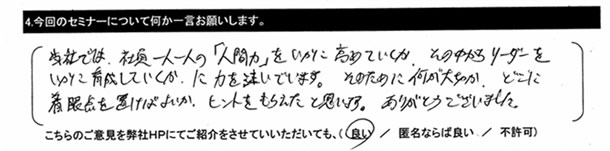 4.今回のセミナーについて何か一言お願いします。
当社では、社員一人一人の「人間力」をいかに高めていくか、その中からリーダーを
いかに育成していくか、に力を注いでいます。そのために何が大切か、どこに
着眼点を置けばよいか、ヒントをもらえたと思います。ありがとうございました。
こちらのご意見を弊社HPにてご紹介をさせていただいても、(良い / 匿名ならば良い / 不許可)